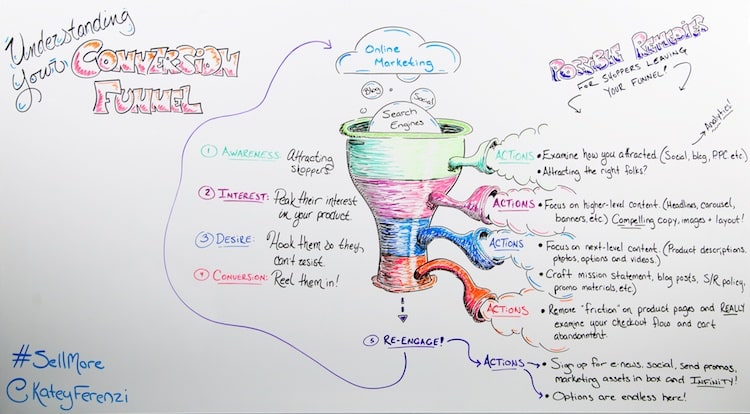 Understanding
Your Conversion
Funnel
Online
Marketing
Blog
Social
Search
Engines
Possible Remedies
For shoppers leaving
your funnel!
Analytics!
① Awareness: Attracting
shoppers
② Interest: Peak their interest
in your product.
③ Desire: Hook them so they
can't resist.
④ Conversion: Reel them in!
Actions
• Examine how you attracted. (Social, blog, PPC etc)
• Attracting the right folks?
Actions
• Focus on higher-level content. (Headlines, carousel,
banners, etc) Compelling copy, images + layout!
Actions
• Focus on next-level content. (Product descriptions,
photos, options and videos.)
• Craft mission statement, blog posts, S/R policy,
promo materials, etc)
Actions
• Remove "friction" on product pages and REALLY
examine your checkout flow and cart
abandonment.
⑤ Re-Engage!
Actions
• Sign up for e-news, social, send promos,
marketing assets in box and Infinity!
• Options are endless here!
#SellMore
@KateyFerenzi